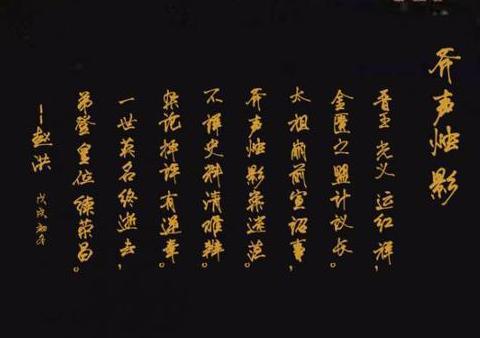 斧声烛影
晋王光义运红祥，
金匮之盟计议长。
太祖榻前宣诏事，
斧声烛影案迷茫。
不详史料清难辩。
论抨评有逆章。
一世英名终逝去，
弟登皇位续荣昌。
——赵洪 戊戌初冬